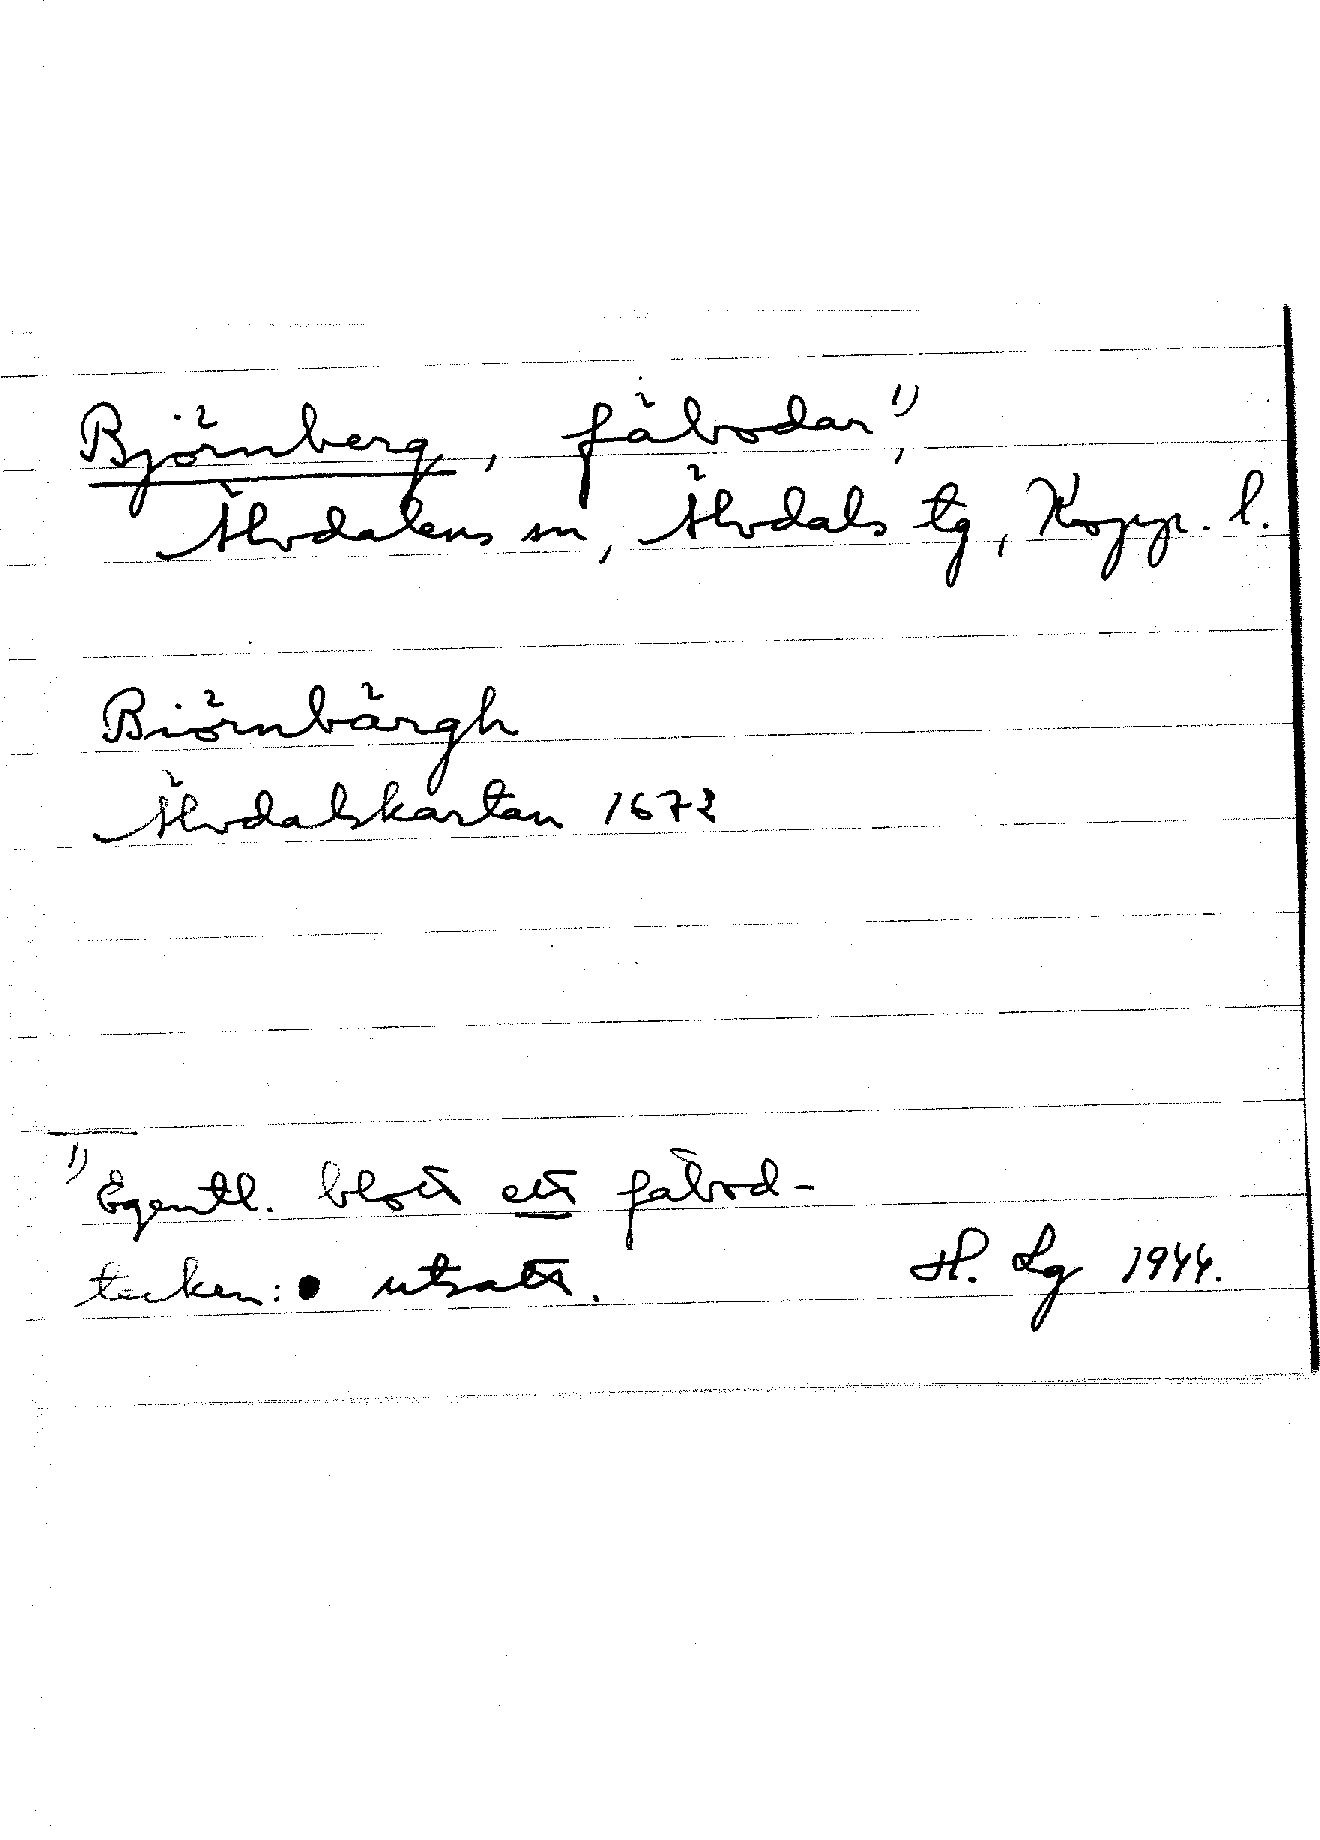 Björnberg, fäbodar¹⁾,
Älvdalens sn, Älvdals tg, Kopp. l.
Biörnbärgh
Älvdalskartan 1672
¹⁾ Egentl. blott ett fäbod-
tecken: ● utsatt.
H. Lg 1944.